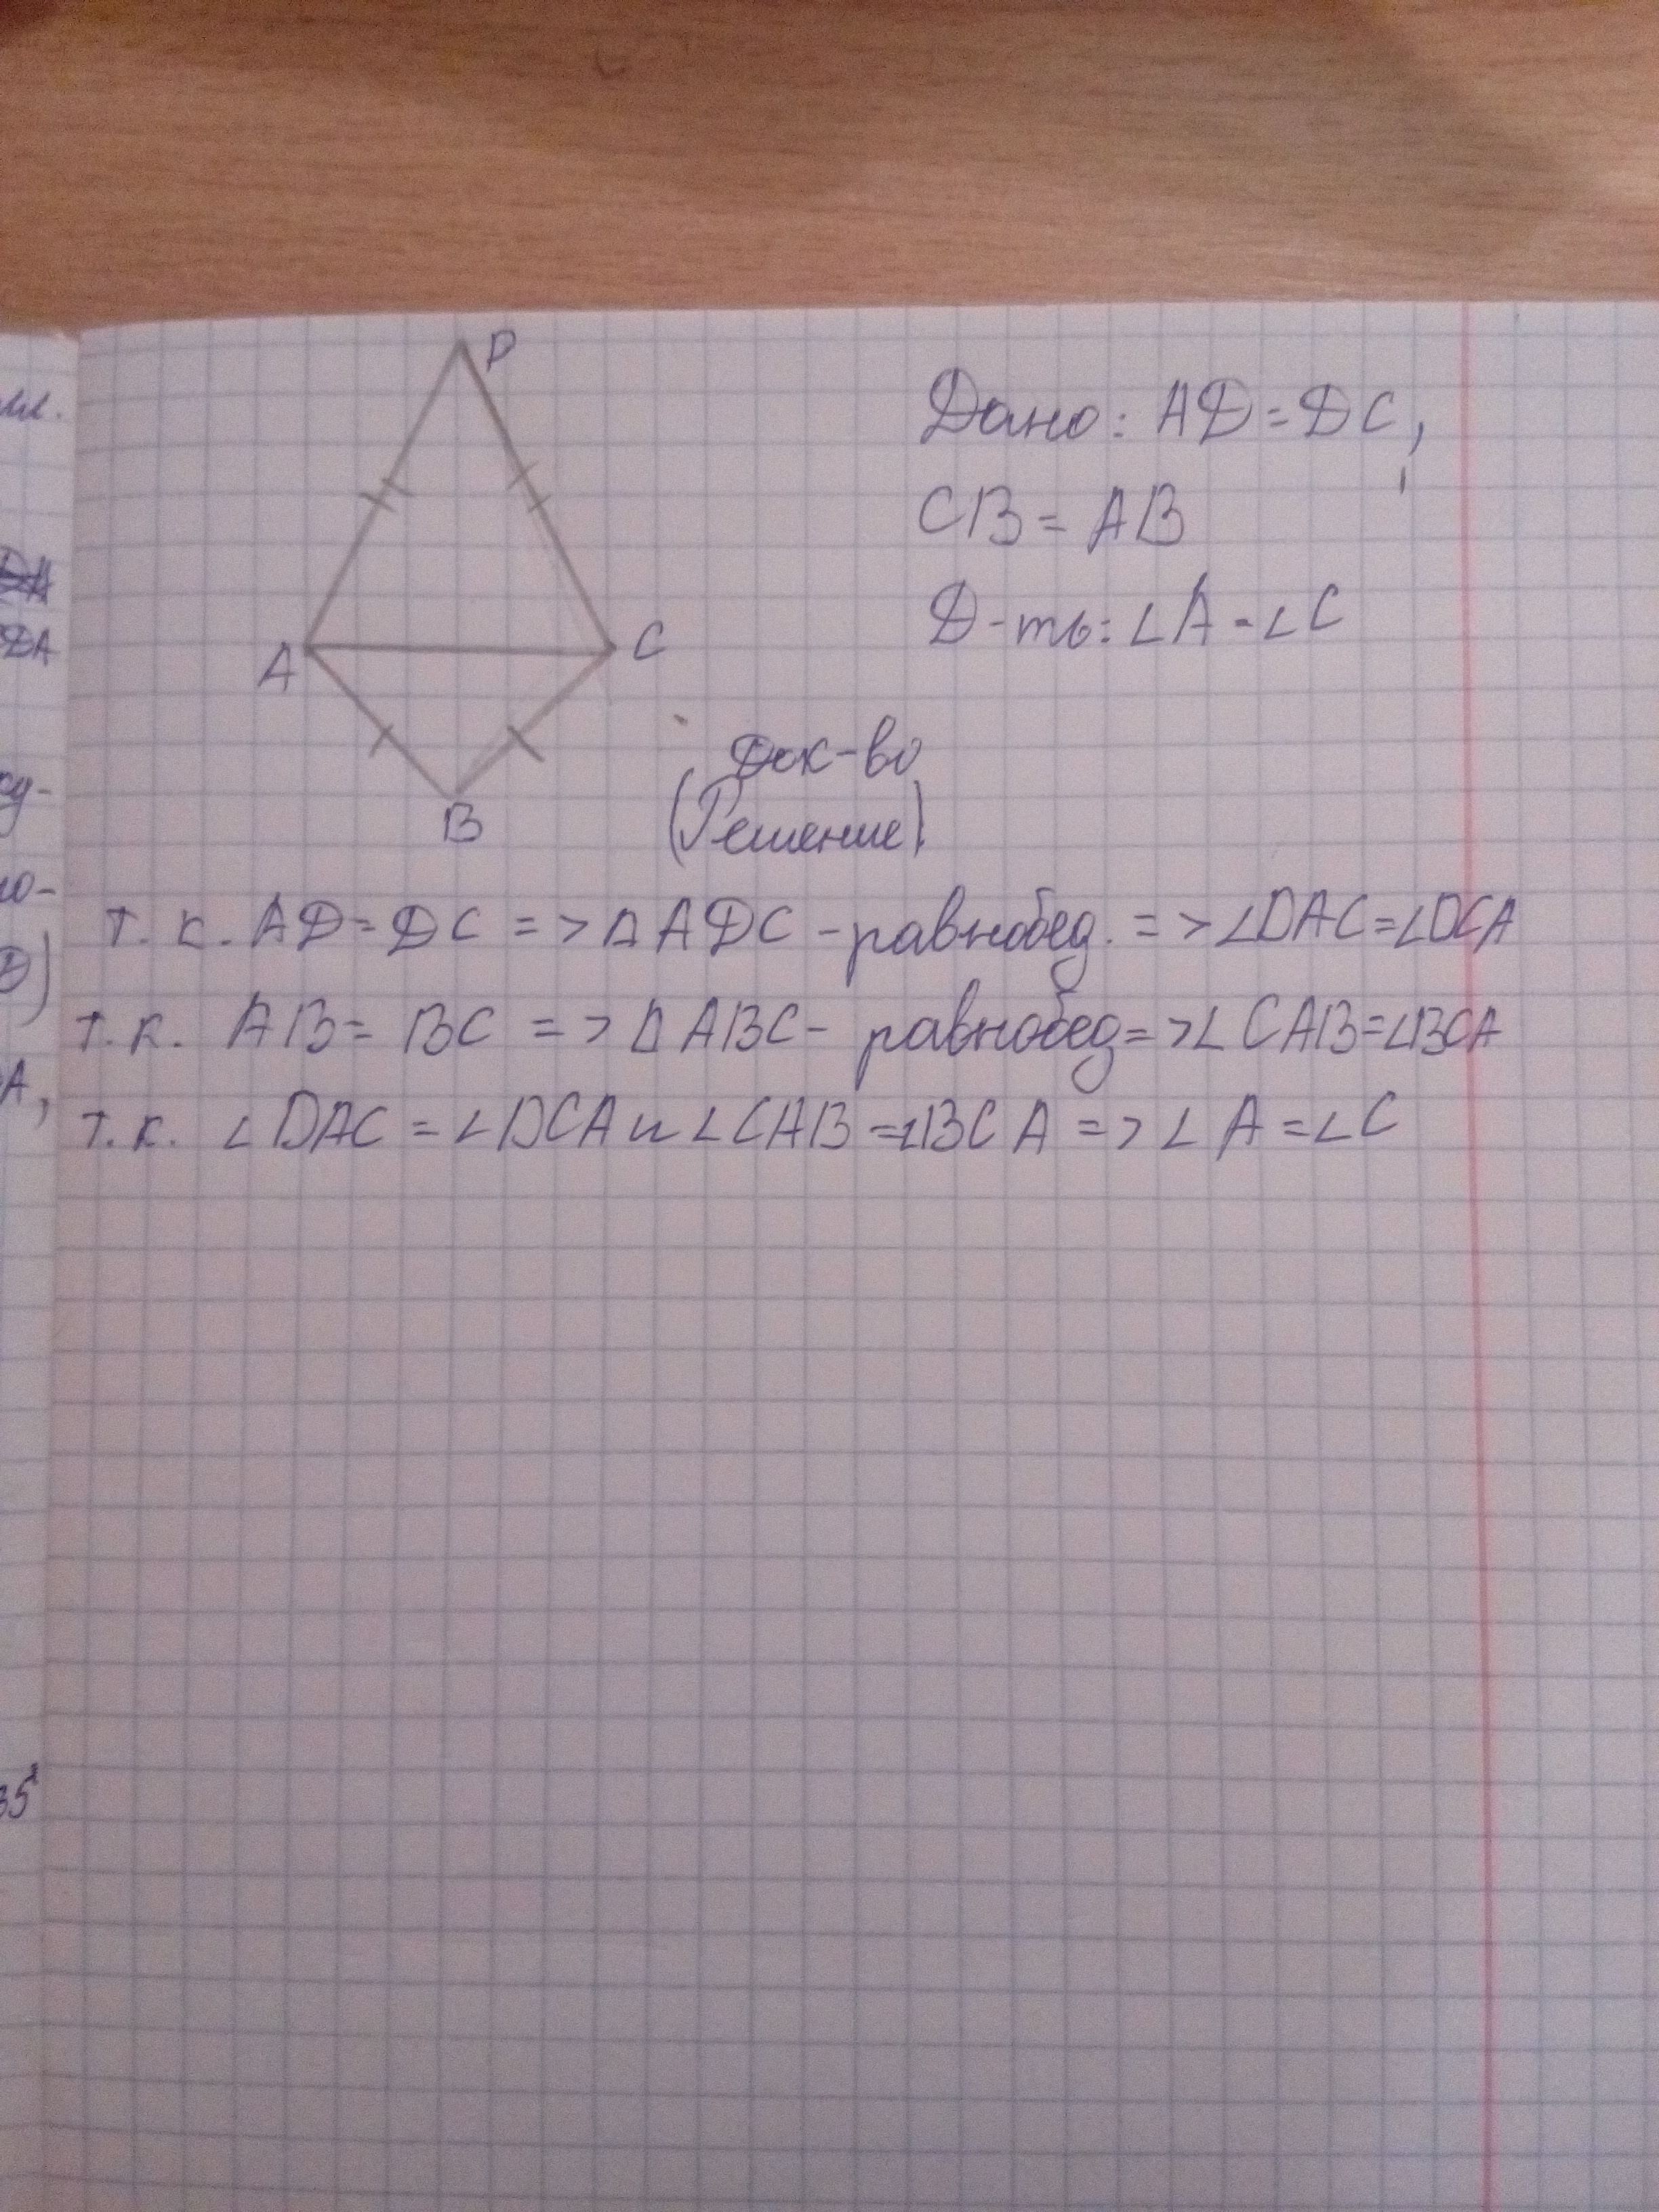 D
A
C
B
Дано: AD = DC,
CB = AB
Д-ть: ∠A = ∠C
Док-во
(Решение)
т. к. AD = DC => △ADC - равнобед. => ∠DAC = ∠DCA
т. к. AB = BC => △ABC - равнобед => ∠CAB = ∠BCA
т. к. ∠DAC = ∠DCA и ∠CAB = ∠BCA => ∠A = ∠C
DA
A,
35°